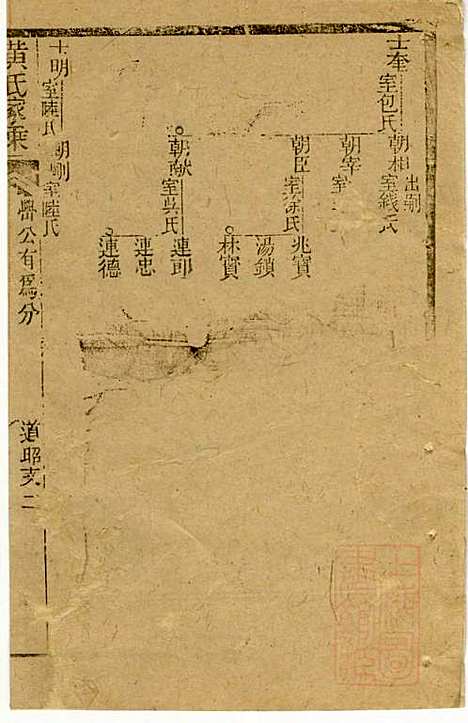 士奎
室包氏
朝相
室錢氏
出嗣
朝宰
室
朝臣
室徐氏
兆寶
湯鎖
林寶
朝献
室吳氏
連郎
連忠
連德
士明
室陸氏
朝剛
室陸氏
黃氏家乘
公有爲分
道昭支二